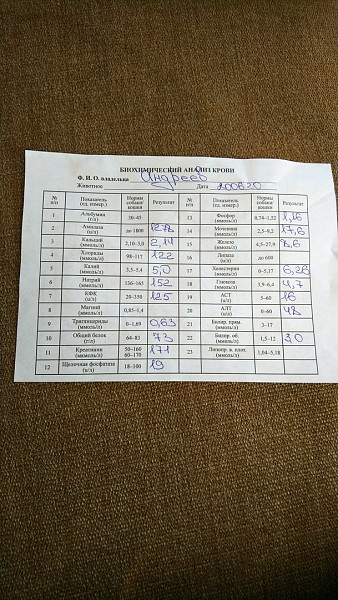 БИОХИМИЧЕСКИЙ АНАЛИЗ КРОВИ
Ф. И. О. владельца Андреев
Животное Дата 200620
№ п/п Показатель (ед. измер.) Нормы собаки/кошки Результат № п/п Показатель (ед. измер.) Нормы собаки/кошки Результат
1 Альбумин (г/л) 30-45 13 Фосфор (ммоль/л) 0,74-1,52 1,26
2 Амилаза (u/л) до 1800 1278 14 Мочевина (ммоль/л) 2,5-9,2 17,6
3 Кальций (ммоль/л) 2,10-3,0 2,14 15 Железо (ммоль/л) 4,5-27,9 8,6
4 Хлориды (ммоль/л) 98-117 122 16 Липаза (u/л) до 600
5 Калий (ммоль/л) 3,5-5,4 5,0 17 Холестерин (ммоль/л) 0-5,17 6,26
6 Натрий (ммоль/л) 136-165 152 18 Глюкоза (ммоль/л) 3,9-6,4 4,7
7 КФК (u/л) 20-350 125 19 АСТ (u/л) 5-60 16
8 Магний (ммоль/л) 0,85-1,4 20 АЛТ (u/л) 0-60 48
9 Триглицериды (ммоль/л) 0-1,69 0,63 21 Билир. прям. (ммоль/л) 3-17
10 Общий белок (г/л) 64-83 73 22 Билир. об. (ммоль/л) 1,5-12 3,0
11 Креатинин (ммоль/л) 50-160 60-170 171 23 Липопр. в. плот. (ммоль/л) 1,04-5,18
12 Щелочная фосфатаза (u/л) 18-100 19